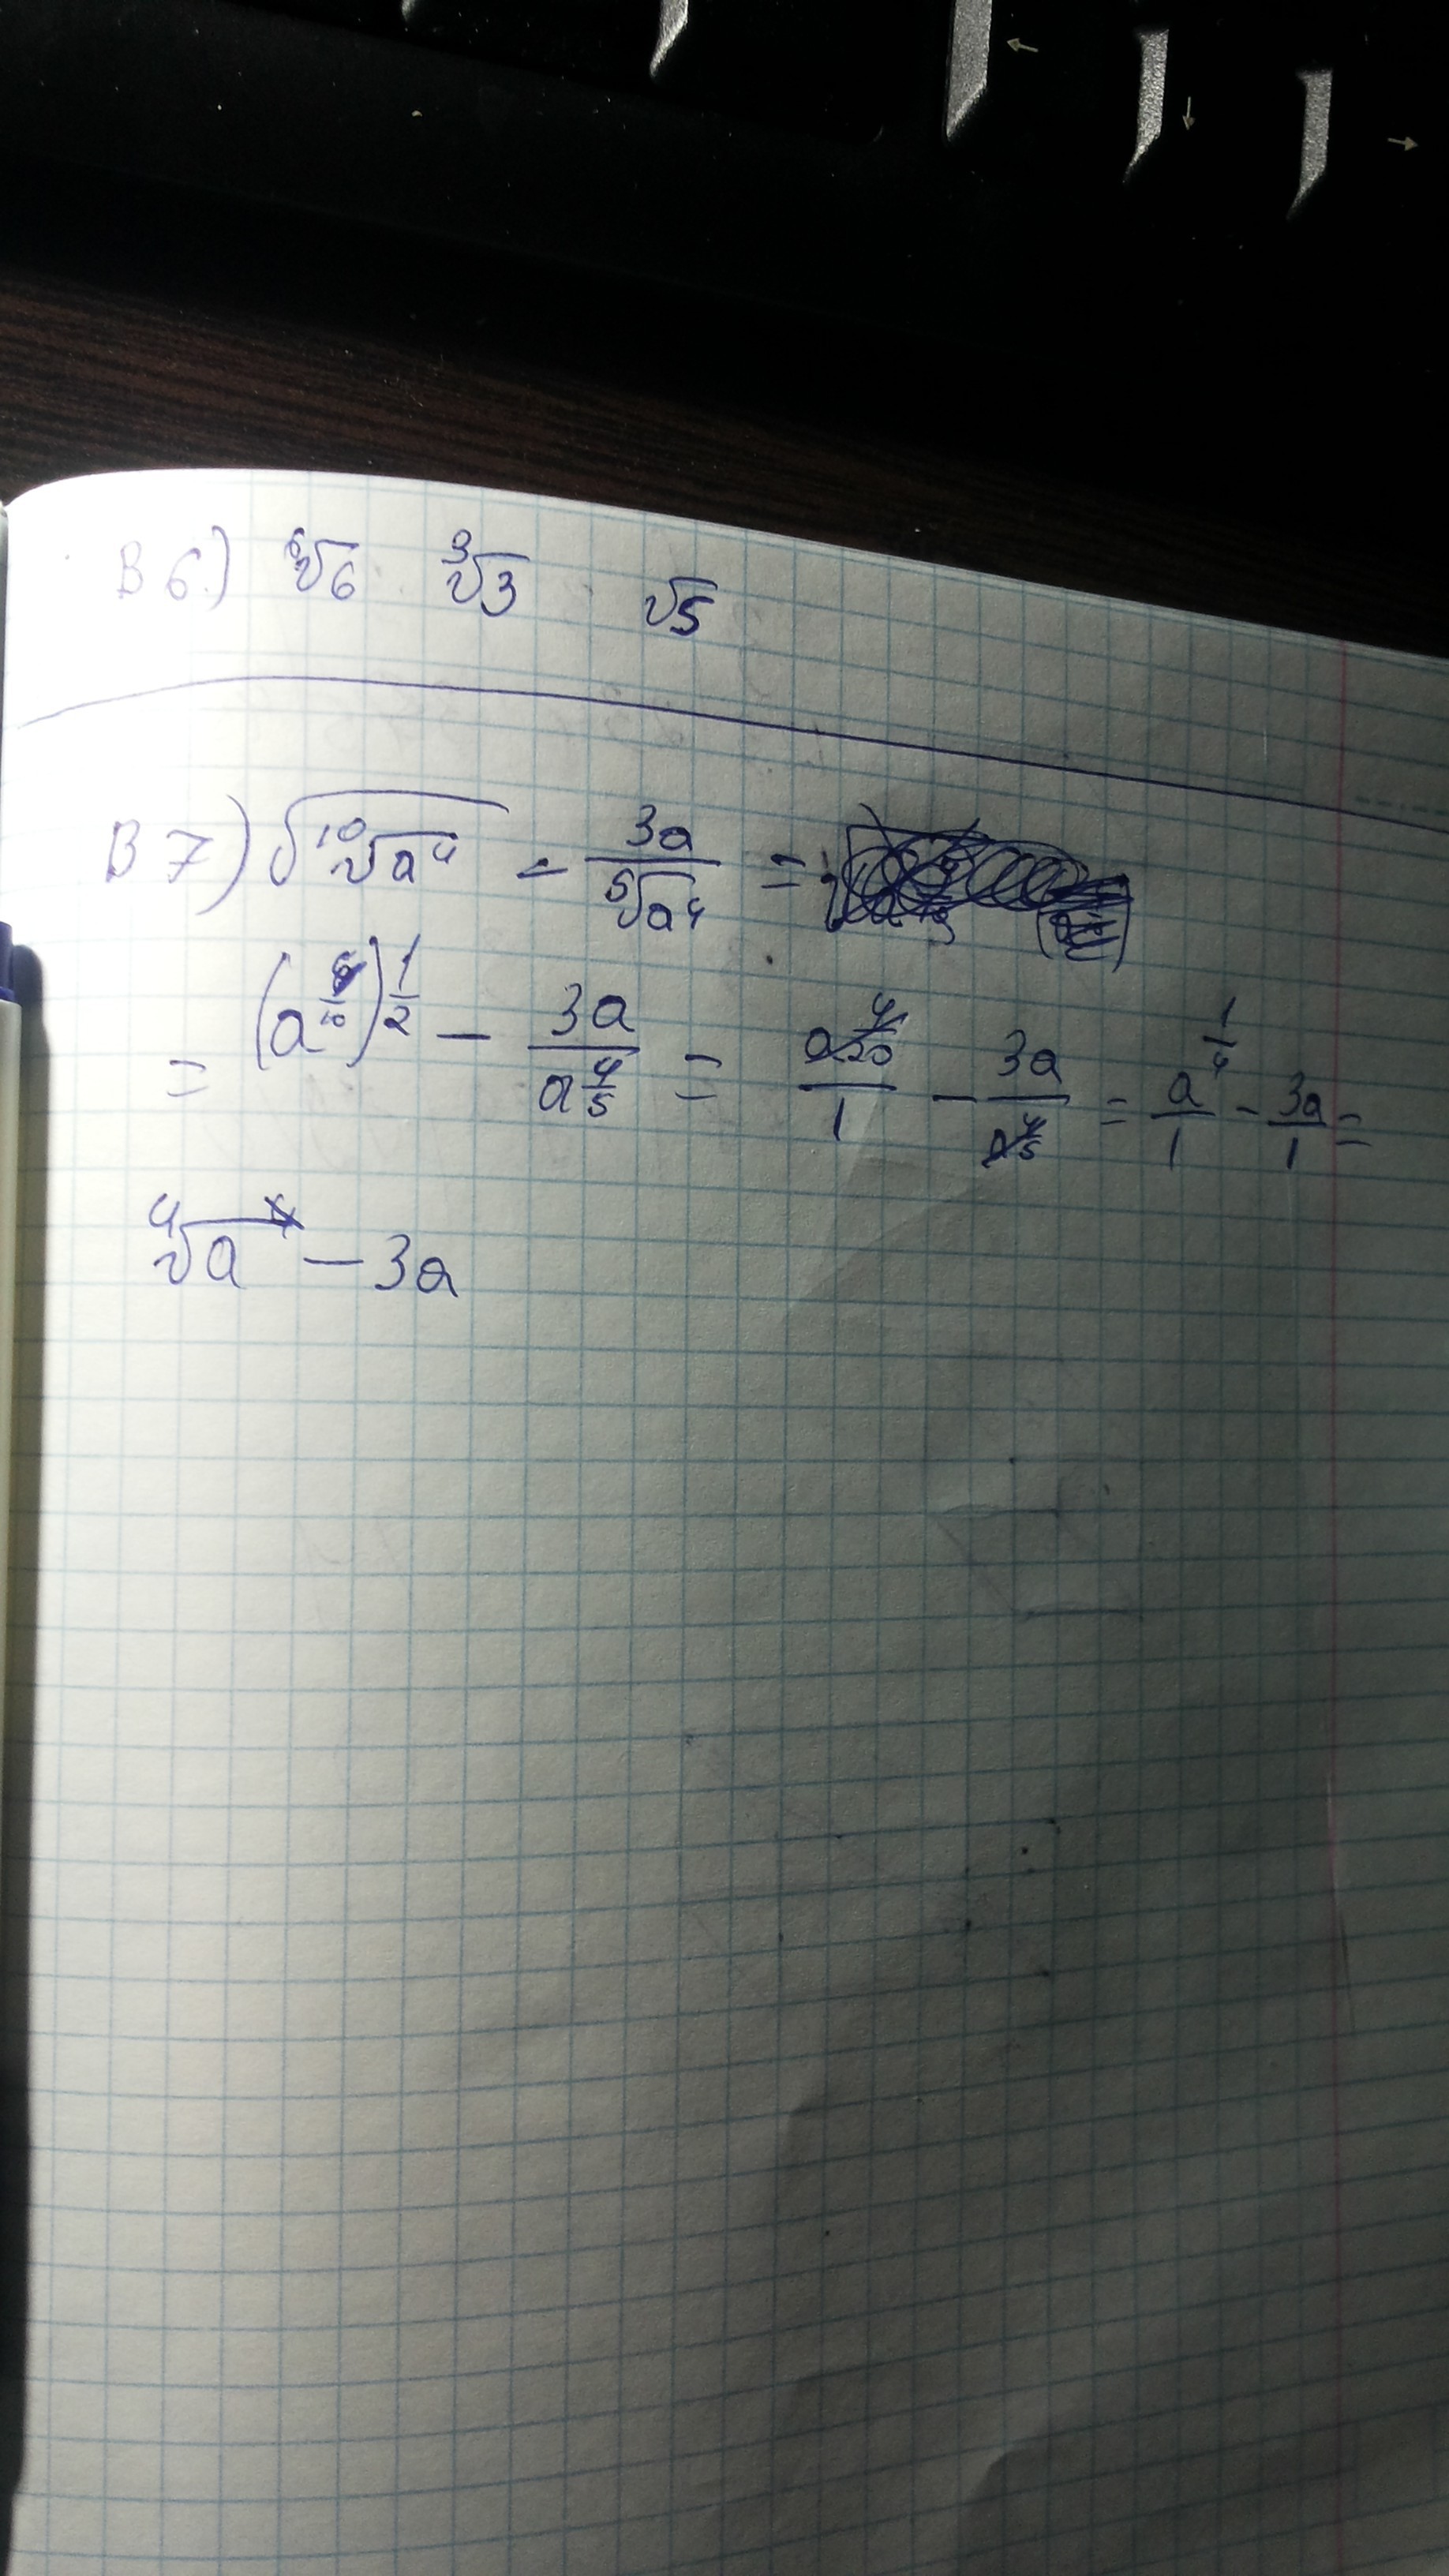 В 6.) ⁶√6 ³√3 √5
В 7) √(¹⁰√a⁴) - 3a/⁵√a⁴ =
= (a^(4/10))^(1/2) - 3a/a^(4/5) = a^(4/20)/1 - 3a/a^(4/5) = a^(1/4)/1 - 3a/1 =
⁴√a - 3a